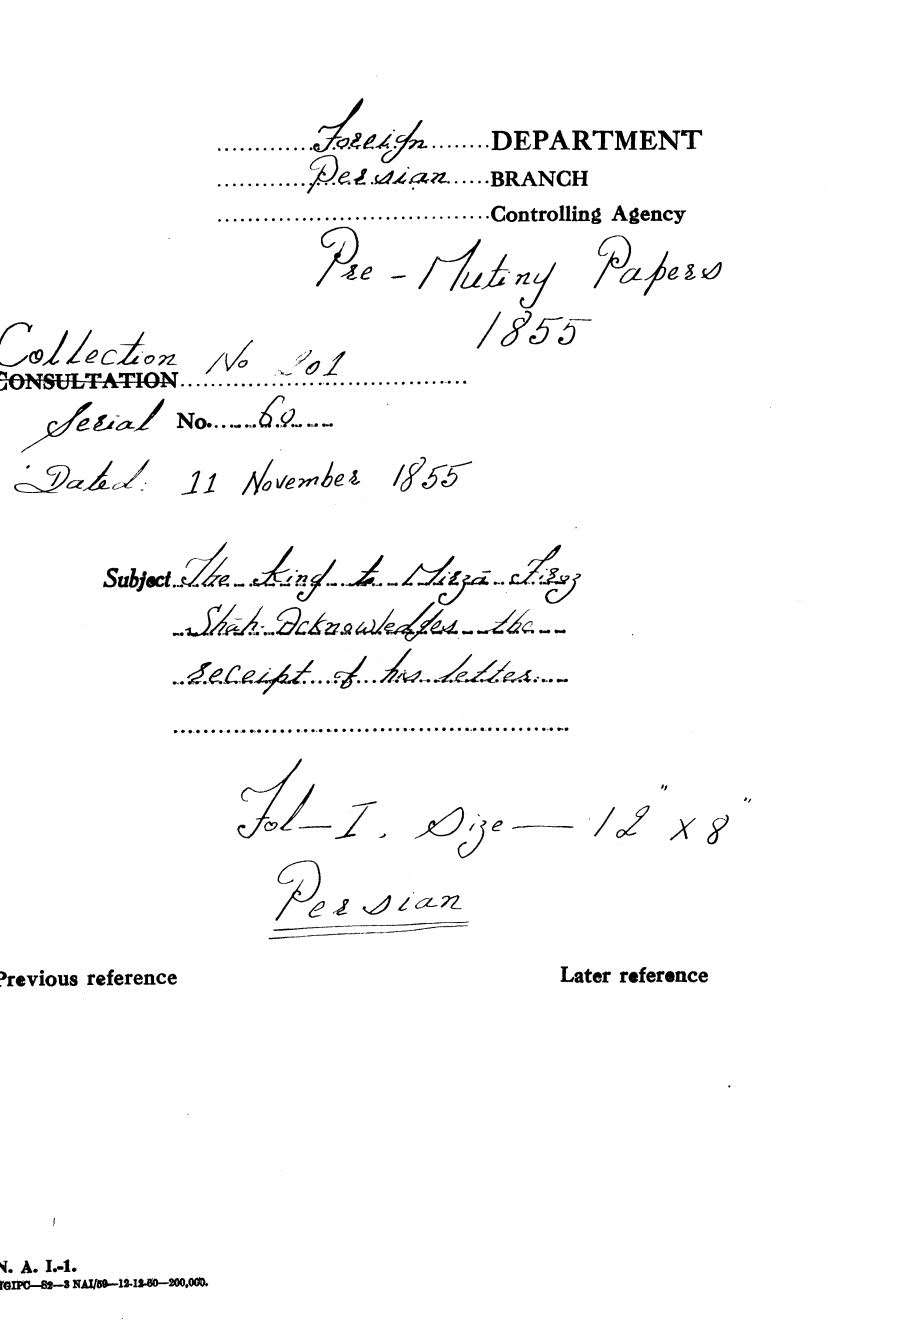 Foreign DEPARTMENT
Persian BRANCH
Controlling Agency
Pre - Mutiny Papers
1855
Collection No 201
CONSULTATION
Serial No. 60
Dated: 11 November 1855
Subject The King to Mirzā Firoz
Shāh. Acknowledges the
receipt of his letter.
Fol — I. Size — 12" x 8"
Persian
Previous reference Later reference
N. A. I.-1.
TGIPC—S2—3 NAI/59—12-12-60—200,000.